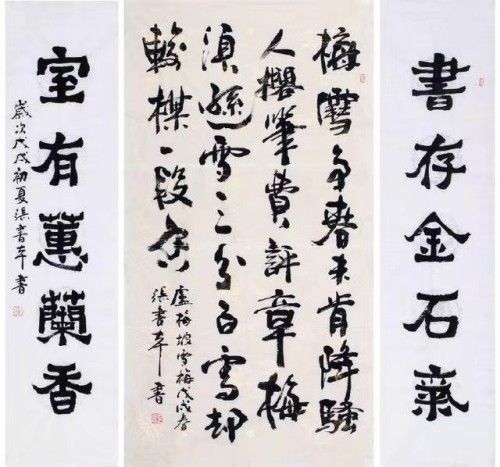 書存金石氣
梅雪争春未肯降騷
人擱筆費評章梅
須遜雪三分白雪却
輸楳一段香
盧梅坡雪梅戊戌春
張書 書
室有蕙蘭香
歲次戊戌初夏張書 書